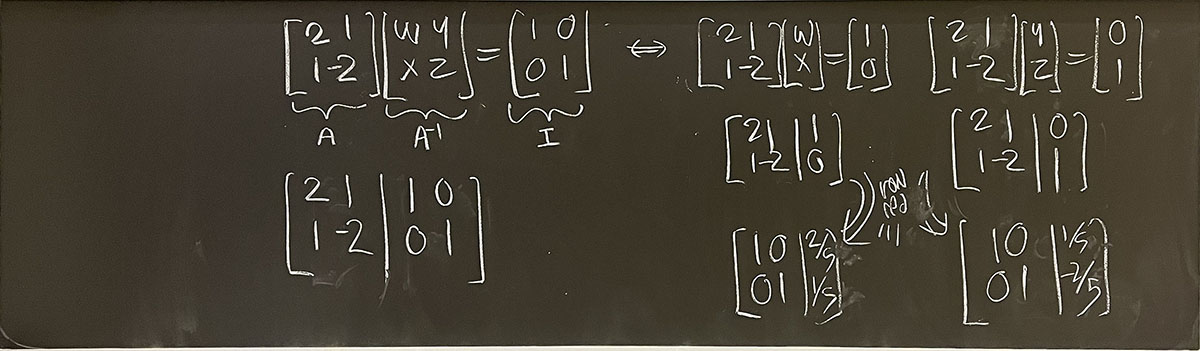 [2 1; 1 -2][w y; x z] = [1 0; 0 1] ⇔ [2 1; 1 -2][w; x] = [1; 0] [2 1; 1 -2][y; z] = [0; 1]
A A⁻¹ I
[2 1 | 1; 1 -2 | 0] [2 1 | 0; 1 -2 | 1]
[2 1 | 1 0; 1 -2 | 0 1]
row
red
[1 0 | 2/5; 0 1 | 1/5] [1 0 | 1/5; 0 1 | -2/5]